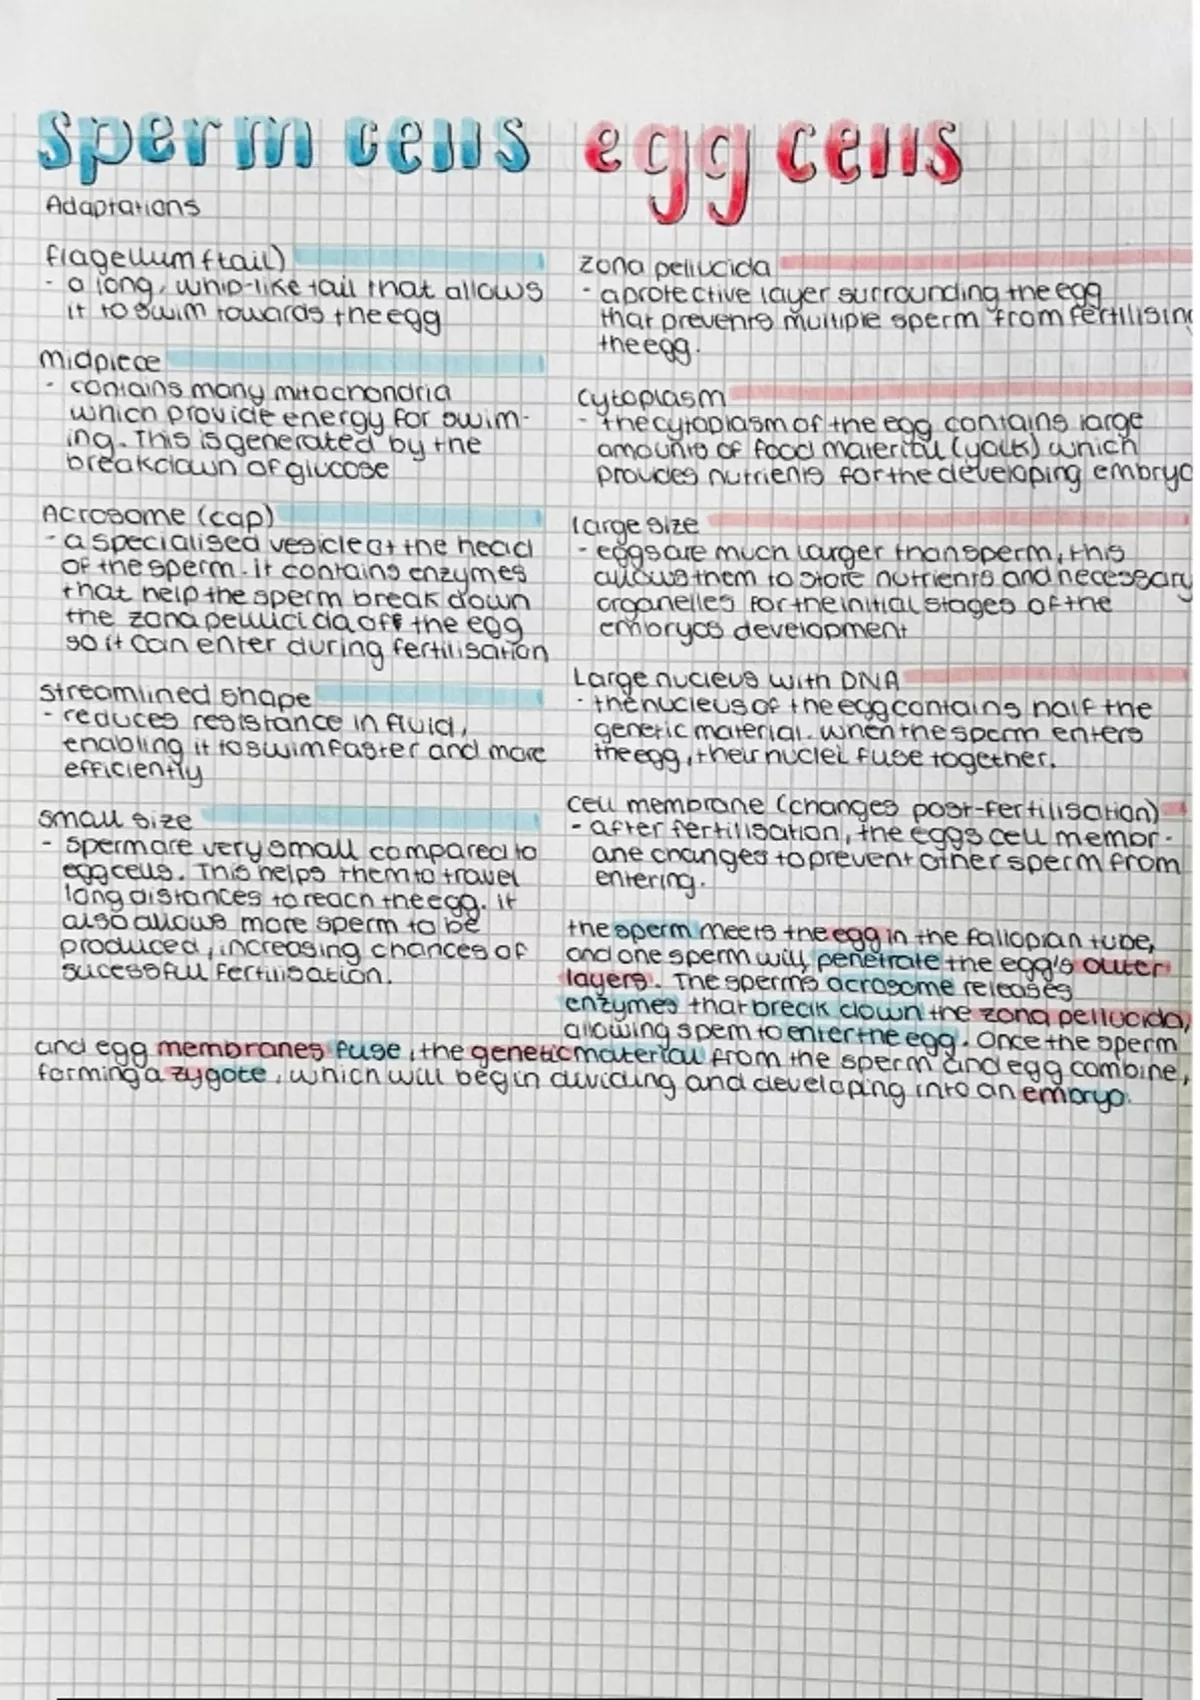 sperm cells
Adaptations
flagellum (tail)
- a long, whip-like tail that allows
it to swim towards the egg
midpiece
- contains many mitochondria
which provide energy for swim-
ing. This is generated by the
breakdown of glucose
Acrosome (cap)
- a specialised vesicle at the head
of the sperm. it contains enzymes
that help the sperm break down
the zona pellucida off the egg
so it can enter during fertilisation
streamlined shape
- reduces resistance in fluid,
enabling it to swim faster and more
efficiently
small size
- sperm are very small compared to
egg cells. This helps them to travel
long distances to reach the egg. it
also allows more sperm to be
produced, increasing chances of
sucessfull fertilisation.
egg cells
zona pellucida
- a protective layer surrounding the egg
that prevents multiple sperm from fertilising
the egg.
cytoplasm
- the cytoplasm of the egg contains large
amounts of food material (yolk) which
provides nutrients for the developing embryo
large size
- eggs are much larger than sperm, this
allows them to store nutrients and necessary
organelles for the initial stages of the
embryos development
Large nucleus with DNA
- the nucleus of the egg contains half the
genetic material. when the sperm enters
the egg, their nuclei fuse together.
cell membrane (changes post-fertilisation)
- after fertilisation, the eggs cell membr-
ane changes to prevent other sperm from
entering.
the sperm meets the egg in the fallopian tube,
and one sperm will penetrate the egg's outer
layers. The sperms acrosome releases
enzymes that break down the zona pellucida,
allowing spem to enter the egg. Once the sperm
and egg membranes fuse, the genetic material from the sperm and egg combine,
forming a zygote, which will begin dividing and developing into an embryo.